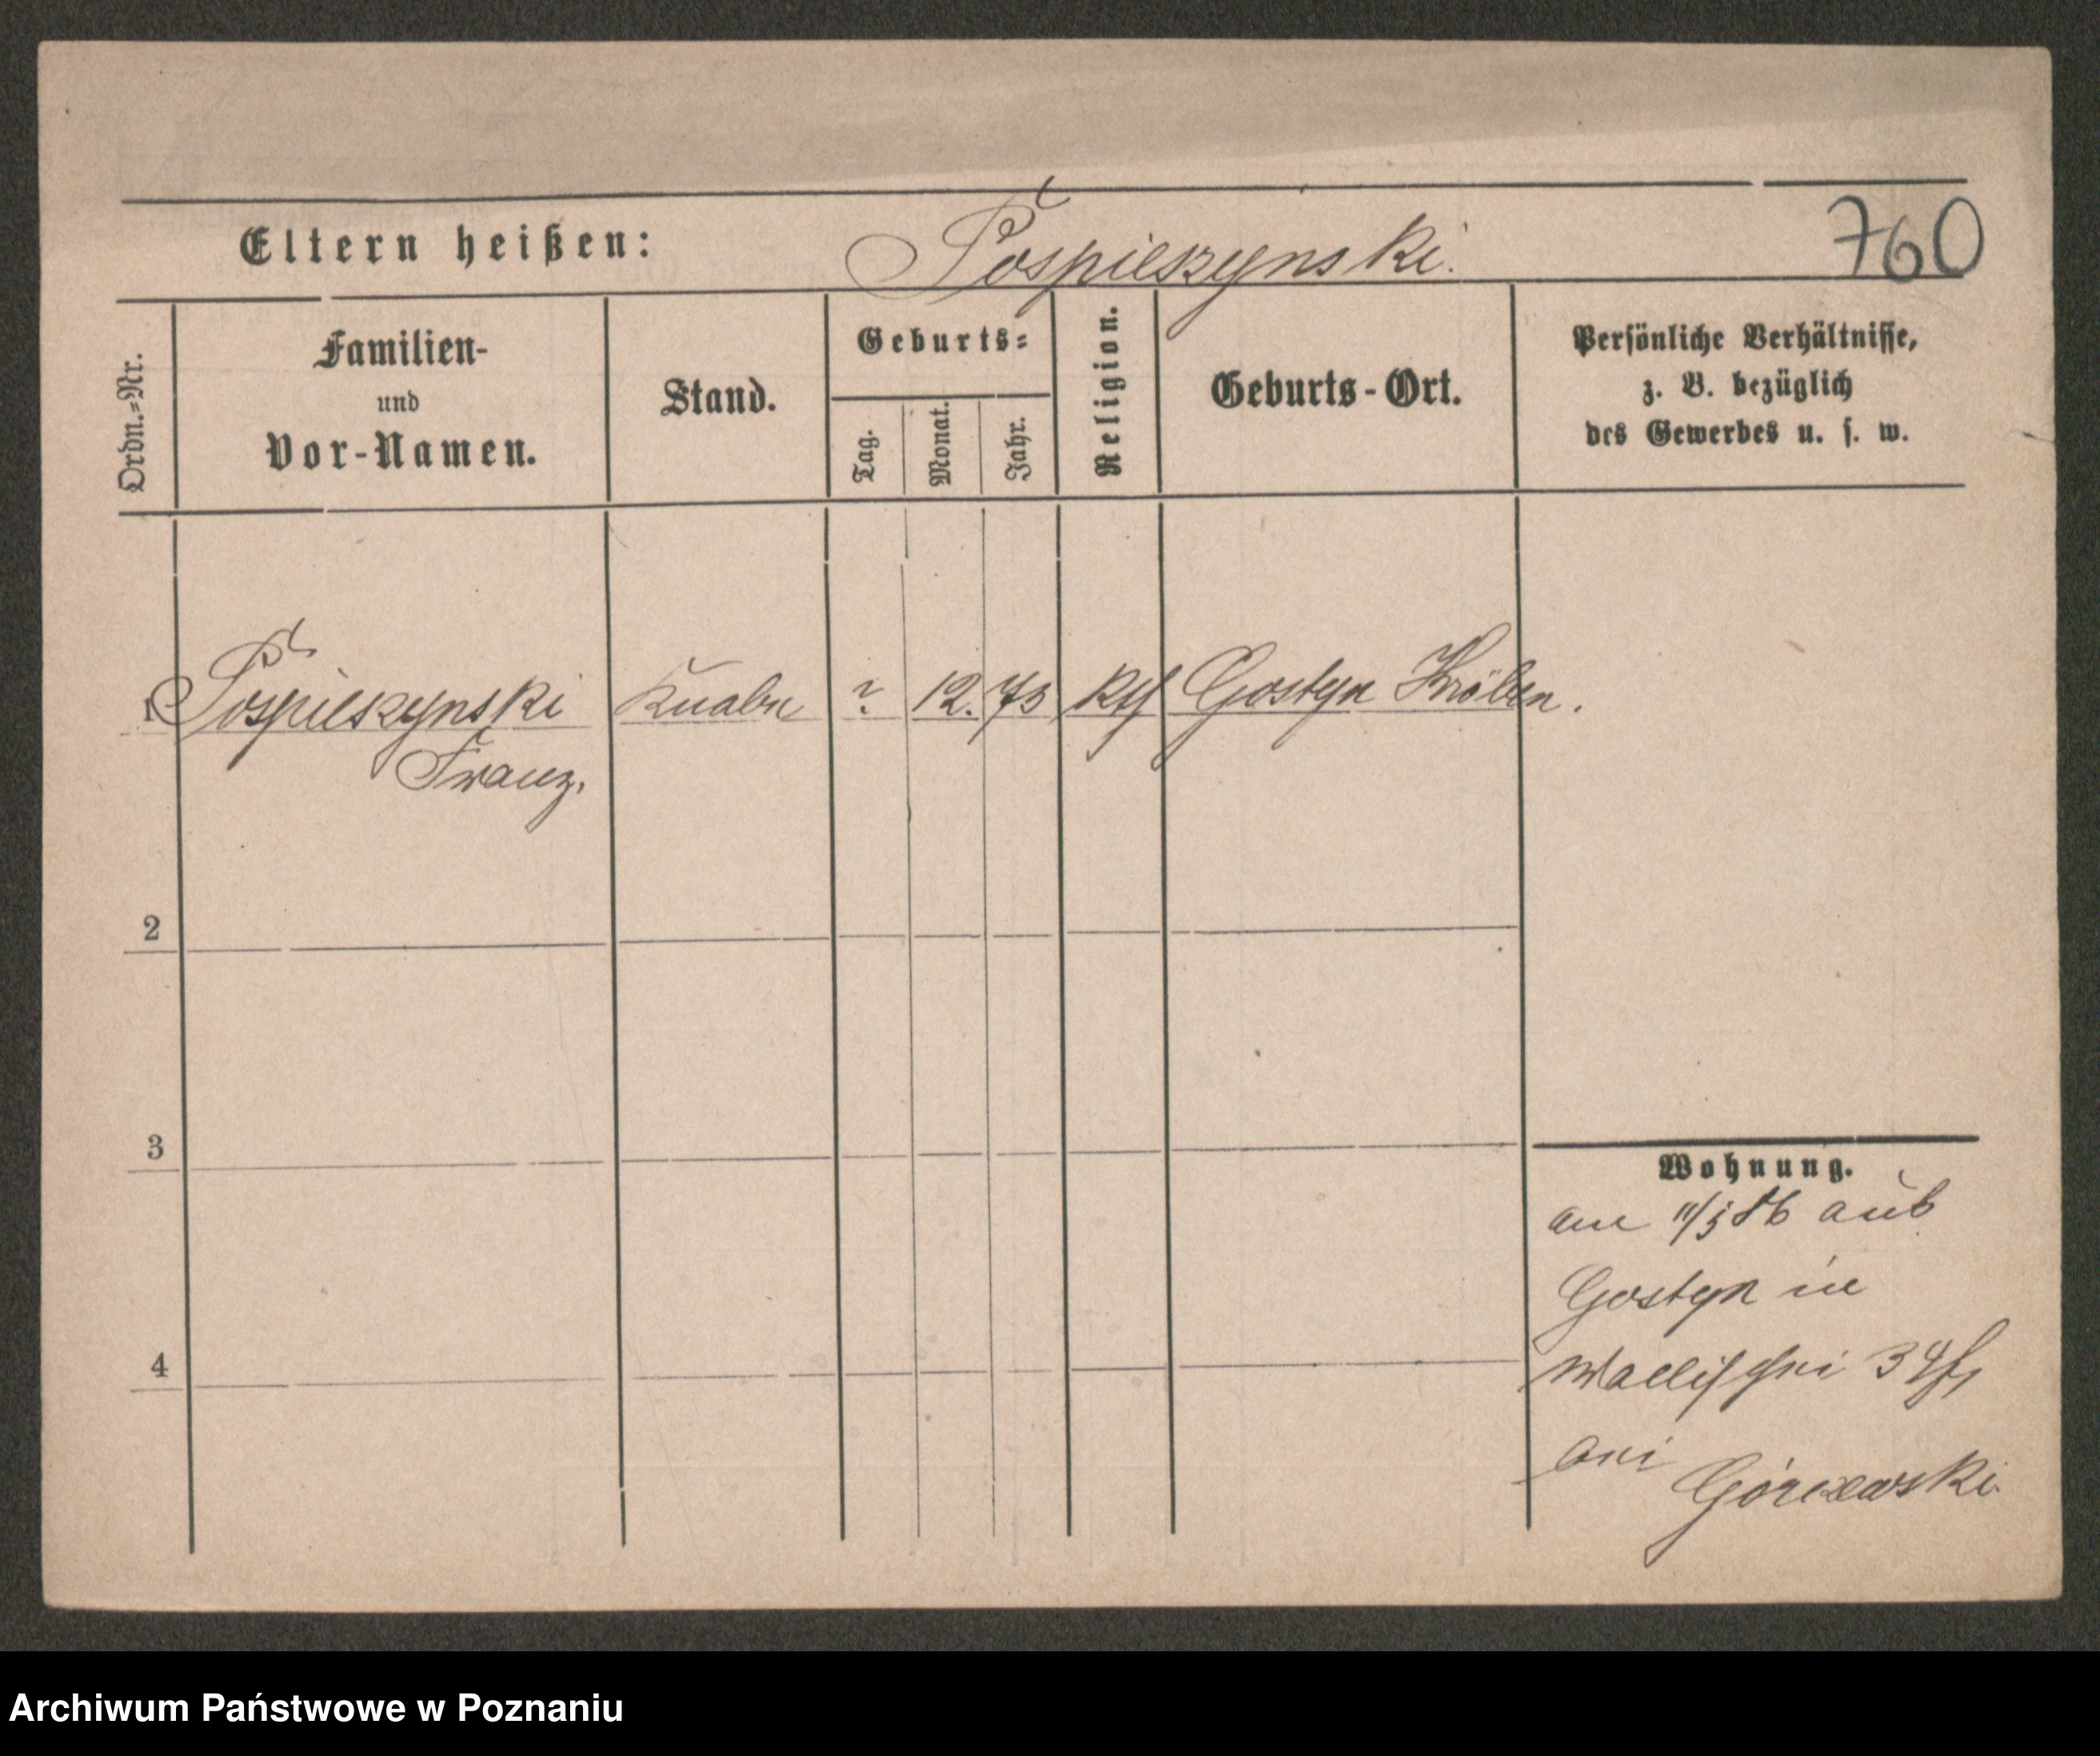 Eltern heißen: Pospieszynski. 760
Ordn.=Nr.
Familien-
und
Vor-Namen.
Stand.
Geburts=
Tag.
Monat.
Jahr.
Religion.
Geburts-Ort.
Persönliche Verhältnisse,
z. B. bezüglich
des Gewerbes u. s. w.
1 Pospieszynski Knabe ? 12. 73 kth Gostyn Kröben.
Franz.
2
3
4
Wohnung.
am 11/5 86 aus
Gostyn in
Wallischei 34/
bei
Górczewski
Archiwum Państwowe w Poznaniu